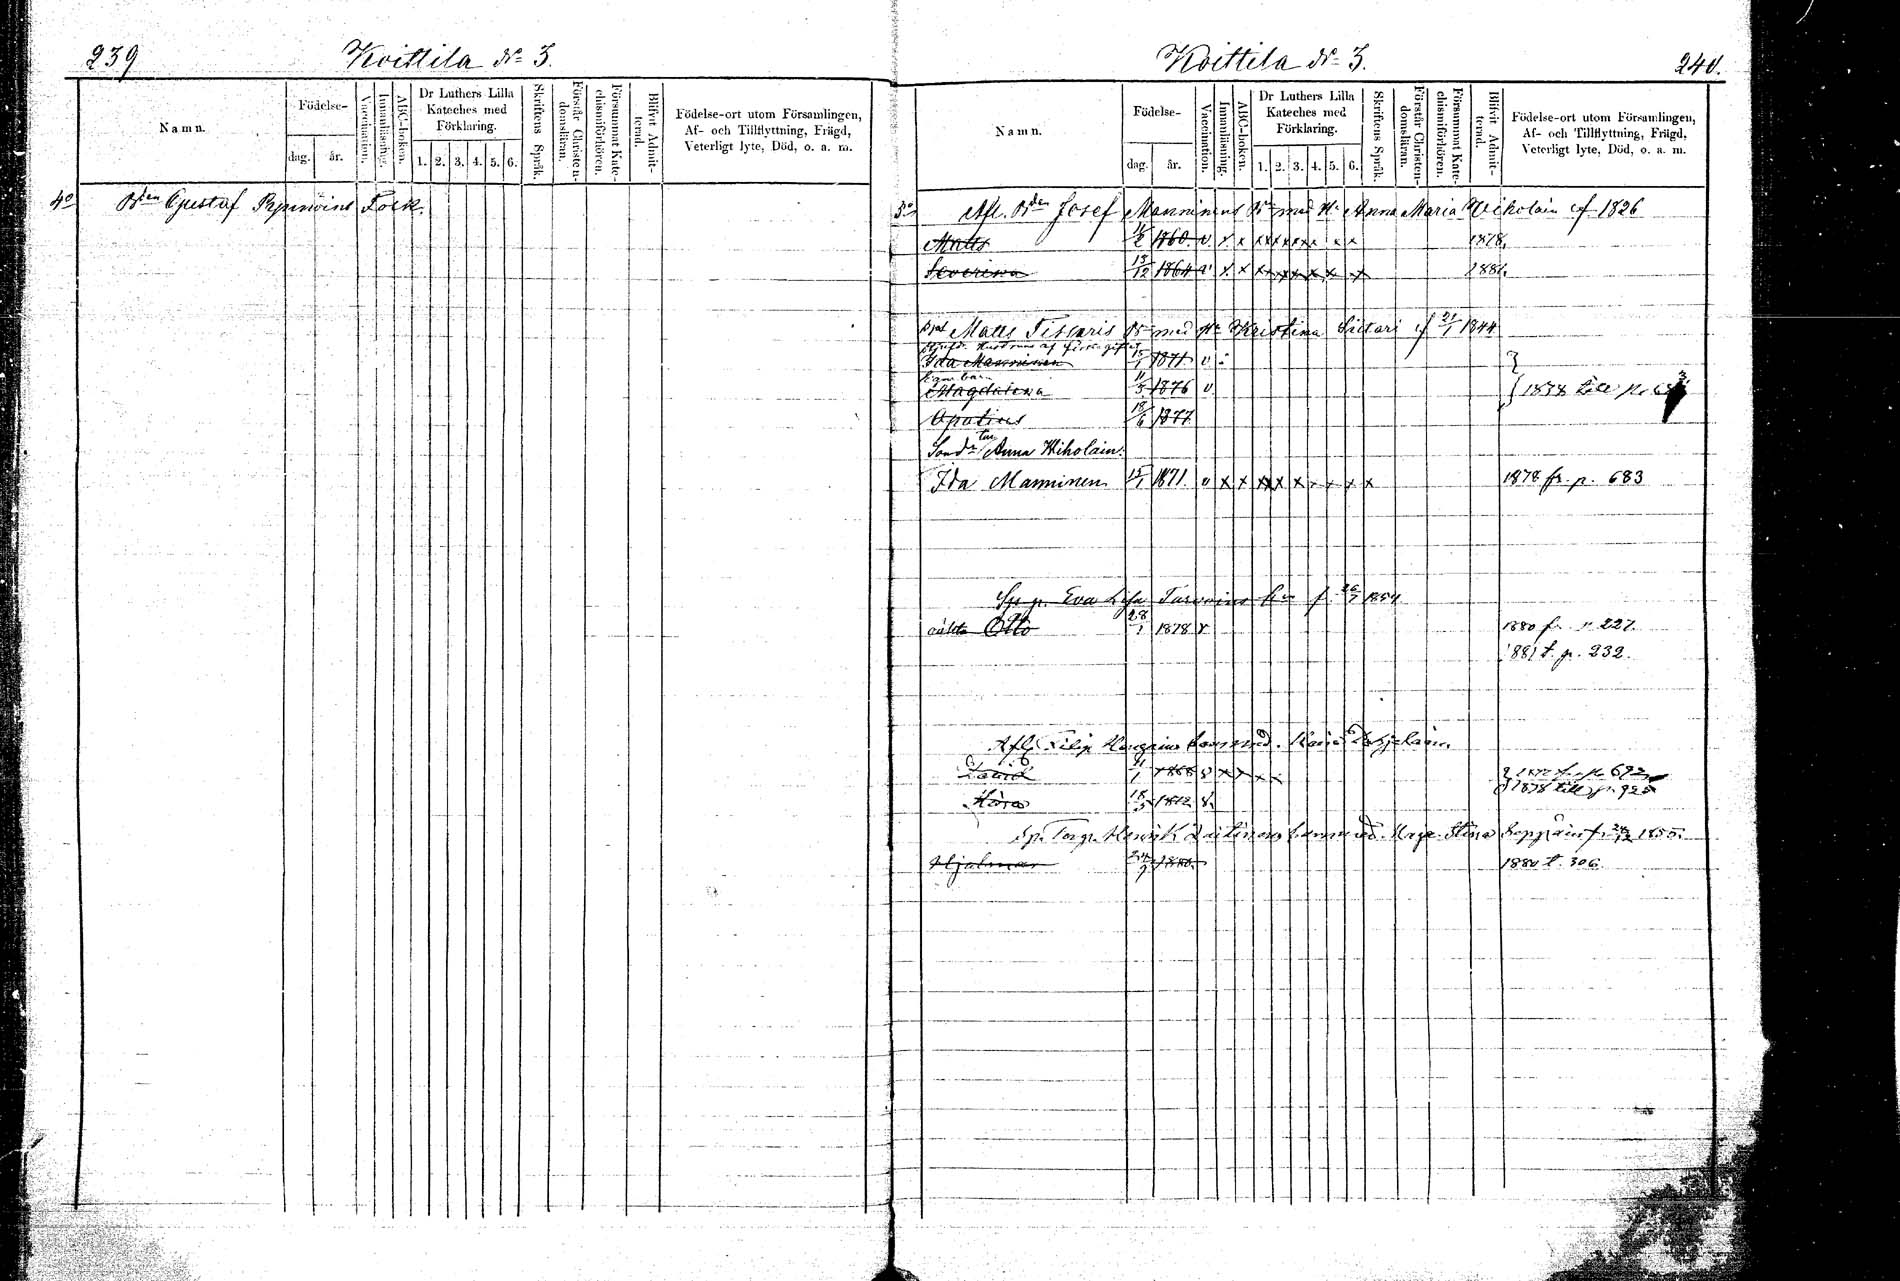 239
Koittila No 3.
Namn.
Födelse-
dag.
år.
Vaccination.
Innanläsning.
ABC-boken.
Dr Luthers Lilla Kateches med Förklaring.
1. 2. 3. 4. 5. 6.
Skriftens Språk.
Förstår Christendomsläran.
Försummat Katechismiförhören.
Blifvit Admitterad.
Födelse-ort utom Församlingen,
Af- och Tillflyttning, Frägd,
Veterligt lyte, Död, o. a. m.
4o Bden Gustaf Folk.
Koittila No 3.
240.
Namn.
Födelse-
dag.
år.
Vaccination.
Innanläsning.
ABC-boken.
Dr Luthers Lilla Kateches med Förklaring.
1. 2. 3. 4. 5. 6.
Skriftens Språk.
Förstår Christendomsläran.
Försummat Katechismiförhören.
Blifvit Admitterad.
Födelse-ort utom Församlingen,
Af- och Tillflyttning, Frägd,
Veterligt lyte, Död, o. a. m.
Afl. Bden Josef Manninens Bn med Ha Anna Maria Wiholain f 1826
Matts 1860 v x x x x x x x x x x 1878.
Severina 13/12 1864 v x x x x x x x x 1881.
Matts Tiscaris Bn med Ha Kristina f 21/1 1844
Ida Manninen 15/1 1871 v
Magdalena 11/5 1876 v 1878 till p.
18/6 1877
Anna Wiholain.
Ida Manninen 15/1 1871 v x x x x x x x x x x 1878 fr. p. 683
Eva Lisa f 26/7 1854
oäkta Otto 28/1 1878 v 1880 fr. p. 227.
1881 t. p. 232.
Afl. Filip
David 11/1 1868 v x x x x
18/5 1872 v. 1878 till p.
Henrik Laitinens Maja Stina f. 1855.
Hjalmar 24/9 1880 1880 t. 306.